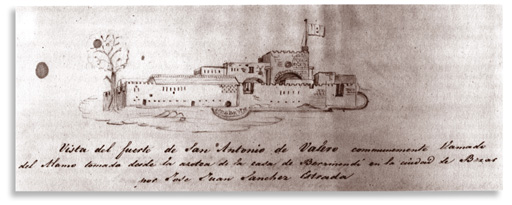 Vista del fuerte de San Antonio de Valero commummente llamado
del Alamo tomada desde la azotea de la casa de Beramendi en la ciudad de Bexar
por Jose Juan Sanchez Estrada